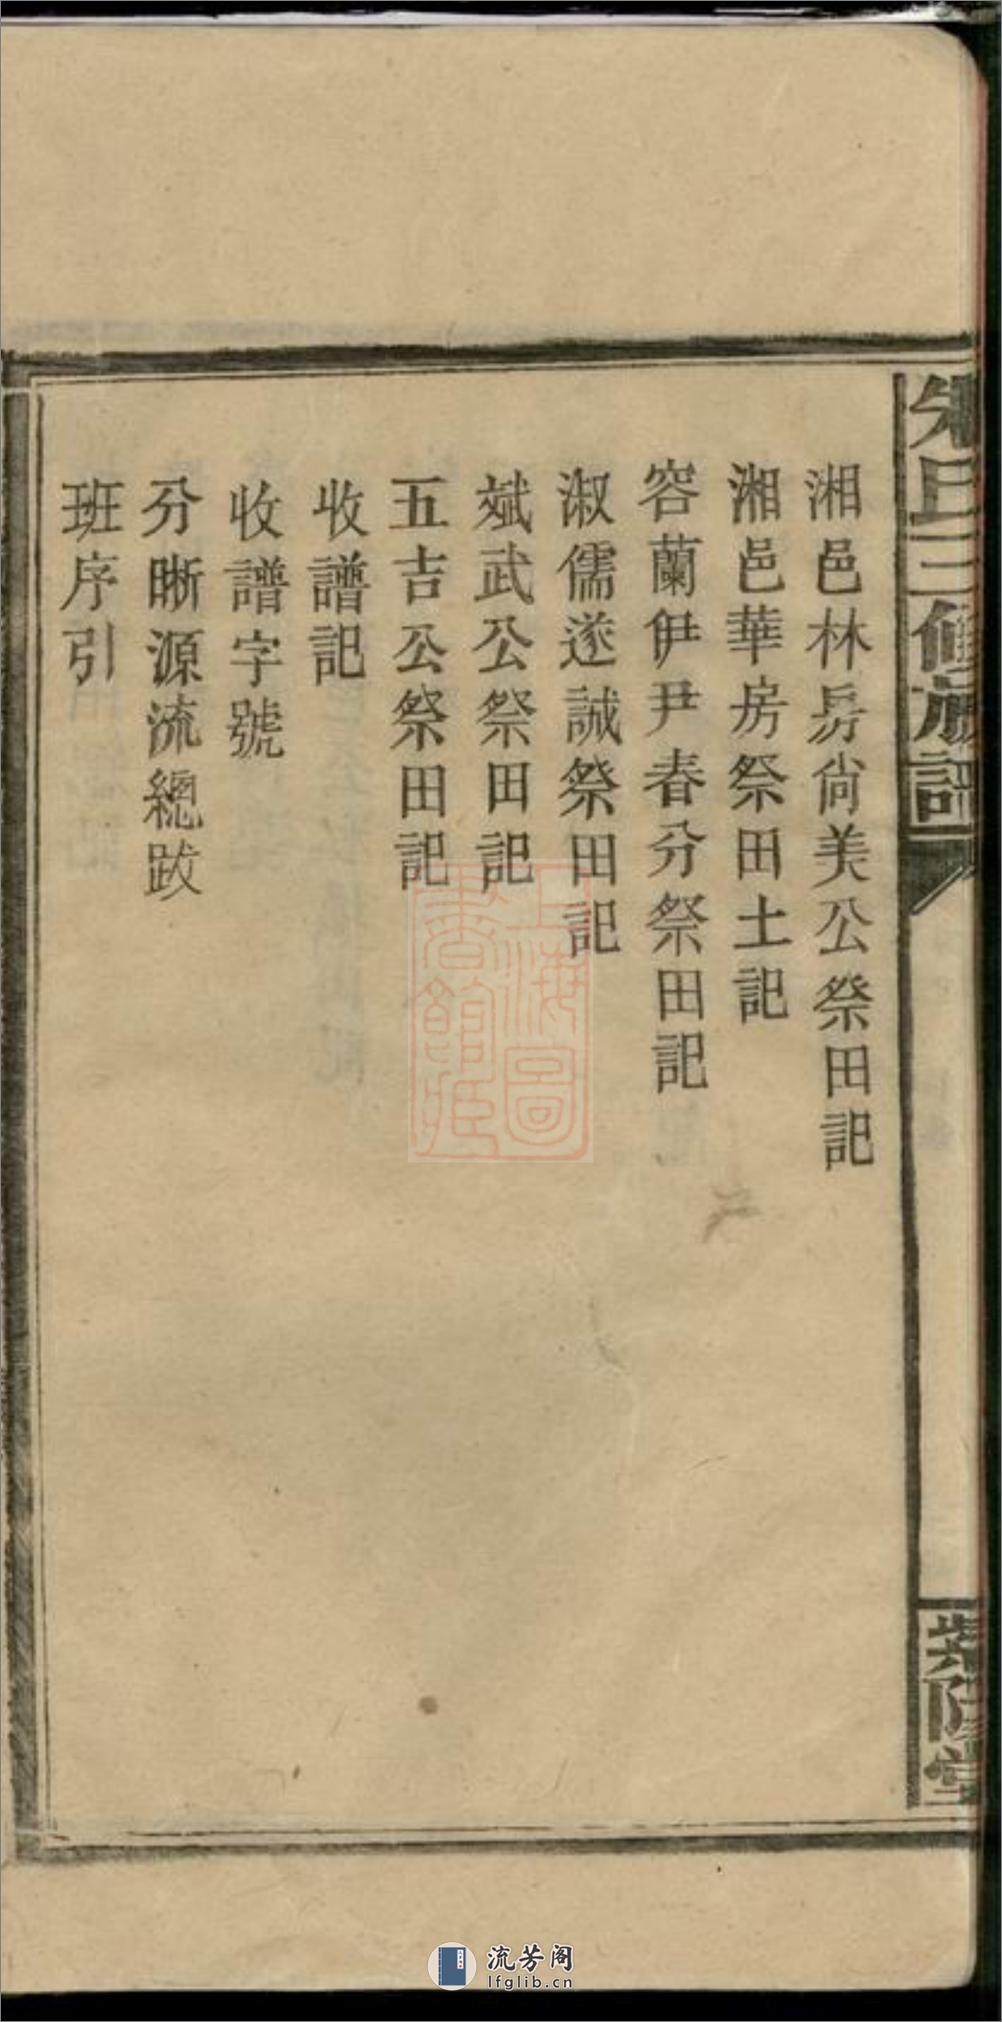 朱氏三修族譜
湘邑林房尙美公祭田記
湘邑華房祭田土記
容蘭伊尹春分祭田記
淑儒遂誠祭田記
斌武公祭田記
五吉公祭田記
收譜記
收譜字號
分晰源流總跋
班序引
紫陽堂
上海圖
書館藏
流芳阁
lfglib.cn